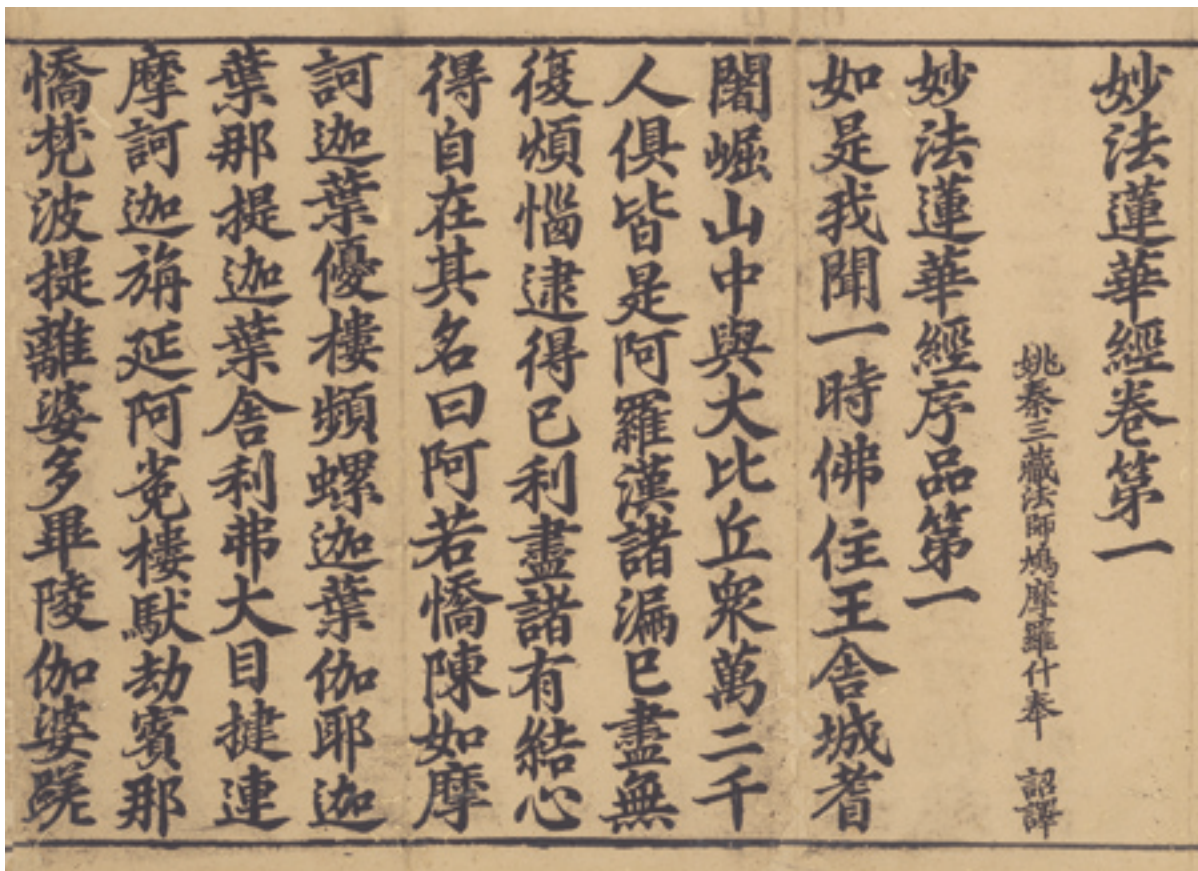 妙法蓮華經卷第一
姚秦三藏法師鳩摩羅什奉　詔譯
妙法蓮華經序品第一
如是我聞一時佛住王舍城耆
闍崛山中與大比丘衆萬二千
人俱皆是阿羅漢諸漏已盡無
復煩惱逮得已利盡諸有結心
得自在其名曰阿若憍陳如摩
訶迦葉優樓頻螺迦葉伽耶迦
葉那提迦葉舍利弗大目揵連
摩訶迦旃延阿㝹樓馱劫賓那
憍梵波提離婆多畢陵伽婆蹉